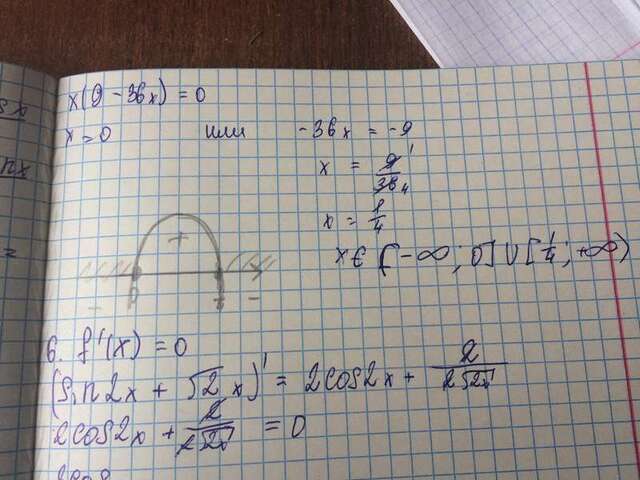 x(9 - 36x) = 0
x = 0 или -36x = -9
x = 9/36 1 4
x = 1/4
x ∈ (-∞; 0] ∪ [1/4; +∞)
+
- 0 -
6. f'(x) = 0
(Sin2x + √2x)' = 2cos2x + 2/2√2x
2cos2x + 2/2√2x = 0